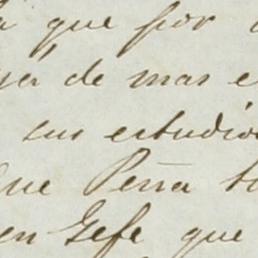 que por
de mas e
sus estudio
que Peña to
en Gefe que